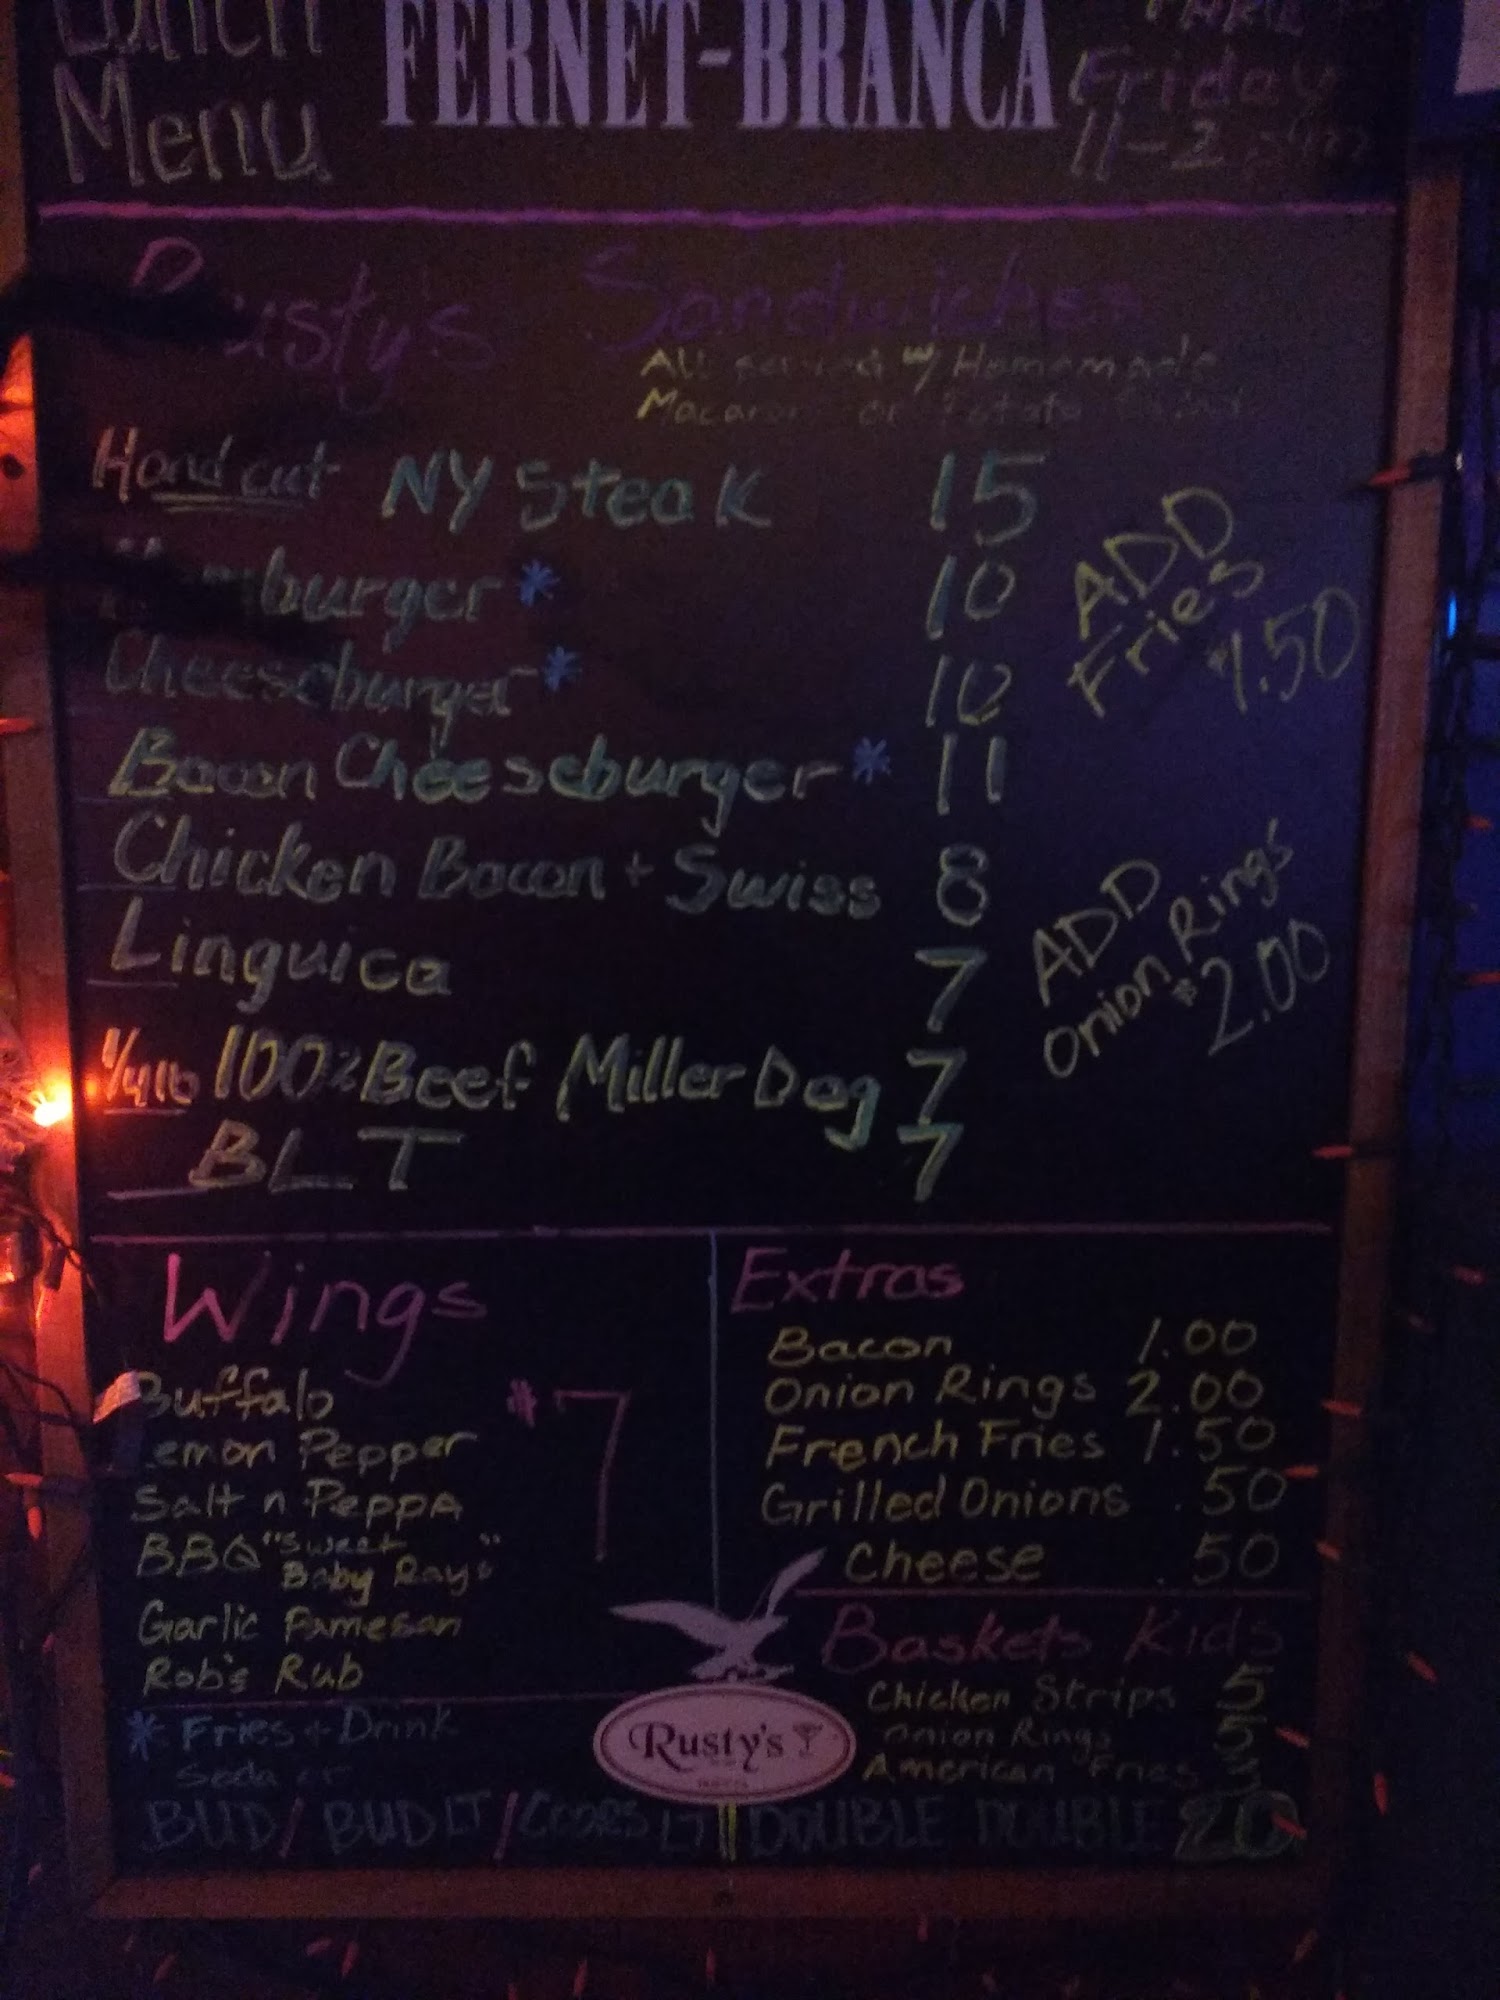 Lunch
Menu
FERNET-BRANCA
Friday
11-2 pm
Rusty's Sandwiches
All served w/ Homemade
Macaroni or Potato
Hand cut NY Steak 15
burger* 10
Cheeseburger* 10
Bacon Cheeseburger* 11
Chicken Bacon + Swiss 8
Linguica 7
1/4 lb 100% Beef Miller Dog 7
BLT 7
ADD
Fries
$1.50
ADD
Onion Rings
$2.00
Wings
$7
Buffalo
Lemon Pepper
Salt n PeppA
BBQ "Sweet
Baby Rays"
Garlic Parmesan
Rob's Rub
* Fries + Drink
Soda or
BUD/BUD LT/COORS LT
Extras
Bacon 1.00
Onion Rings 2.00
French Fries 1.50
Grilled Onions .50
Cheese .50
Baskets Kids
Chicken Strips 5
Onion Rings 5
American Fries 3
DOUBLE DOUBLE 20
Rusty's